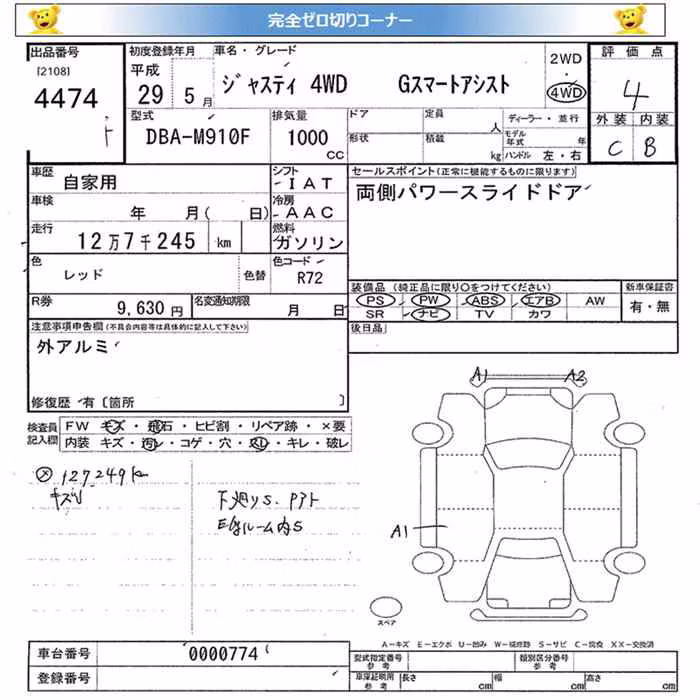 完全ゼロ切りコーナー
出品番号
[2108]
4474
初度登録年月
平成
29 5月
車名・グレード
ジャスティ 4WD Gスマートアシスト
2WD
・
4WD
評価点
4
外装 内装
C B
型式
DBA-M910F
排気量
1000
CC
ドア
形状
定員
人
積載
kg
ディーラー・並行
モデル
年式 年
ハンドル 左・右
車歴
自家用
シフト
IAT
車検
年 月( 日)
冷房
AAC
走行
12万7千245 km
燃料
ガソリン
色
レッド 色替
色コード
R72
R券
9,630円
名変通知期限
月 日
セールスポイント(正常に機能するものに限ります)
両側パワースライドドア
装備品(純正品に限り○をつけてください)
PS PW ABS エアB AW
SR ナビ TV カワ
新車保証書
有・無
後日品
注意事項申告欄(不具合内容等は具体的に記入して下さい)
外アルミ
修復歴 有〔箇所 〕
検査員
記入欄
FW キズ・飛石・ヒビ割・リペア跡・×要
内装 キズ・汚レ・コゲ・穴・スレ・キレ・破レ
127249k
キズ
下廻りS.
内S
A1 A2
A1
スペア
A-キズ E-エクボ U-凹み W-補修跡 S-サビ C-腐食 XX-交換済
車台番号
0000774
登録番号
型式指定番号
参考
類別区分番号
参考
車庫証明用
参考
長さ cm
幅 cm
高さ cm